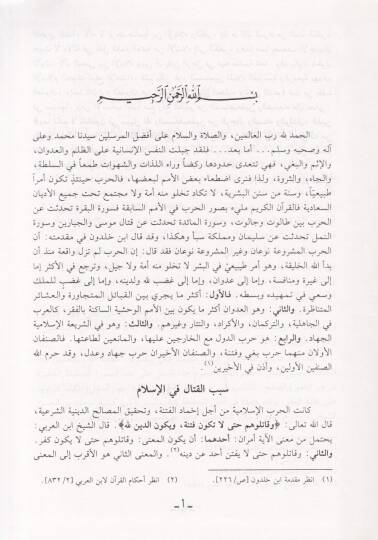 بسم الله الرحمن الرحيم
الحمد لله رب العالمين، والصلاة والسلام على أفضل المرسلين سيدنا محمد وعلى
آله وصحبه وسلم... أما بعد... فلقد جبلت النفس الإنسانية على الظلم والعدوان،
والإثم والبغي، فهي تتعدى حدودها ركضاً وراء اللذات والشهوات طمعاً في السلطة،
والجاه، والثروة، ولذا فنرى اضطهاد بعض الأمم لبعضها، فالحرب حينئذٍ تكون أمراً
طبيعيّاً، وسنة من سنن البشرية، لا تكاد تخلو منه أمة ولا مجتمع تحت جميع الأديان
السعادية فالقرآن الكريم مليء بصور الحرب في الأمم السابقة فسورة البقرة تحدثت عن
الحرب بين طالوت وجالوت، وسورة المائدة تحدثت عن قتال موسى والجبارين وسورة
النمل تحدثت عن سليمان ومملكة سبأ وهكذا، وقد قال ابن خلدون في مقدمته: أن
الحرب المشروعة نوعان وغير المشروعة نوعان فقد قال: إن الحرب لم تزل واقعة منذ أن
بدأ الله الخليقة، وهو أمر طبيعيٌ في البشر لا تخلو منه أمة ولا جيل، وترجع في الأكثر إما
إلى غيرة ومنافسة، وإما إلى عدوان، وإما إلى غضب لله ولدينه، وإما إلى غضب للملك
وسعي في تمهيده وبسطه. فالأول: أكثر ما يجري بين القبائل المتجاورة والعشائر
المتناظرة. والثاني: وهو العدوان أكثر ما يكون بين الأمم الوحشية الساكنة بالقفر، كالعرب
في الجاهلية، والتركمان، والأكراد، والتتار وغيرهم. والثالث: وهو في الشريعة الإسلامية
الجهاد. والرابع: هو حرب الدول مع الخارجين عليها، والمانعين لطاعتها. فالصنفان
الأولان منهما حرب بغي وفتنة، والصنفان الأخيران حرب جهاد وعدل، وقد حرم الله
الصنفين الأولين، وأذن في الأخيرين(١)
سبب القتال في الإسلام
كانت الحرب الإسلامية من أجل إخماد الفتنة، وتحقيق المصالح الدينية الشرعية،
قال الله تعالى: ﴿وقاتلوهم حتى لا تكون فتنة، ويكون الدين لله﴾. قال الشيخ ابن العربي:
يحتمل من معنى الآية أمران: أحدهما: أن يكون المعنى: وقاتلوهم حتى لا يكون كفر.
والثاني: وقاتلوهم حتى لا يفتن أحد عن دينه(٢). والمعنى الثاني هو الأقرب إلى المعنى
(١) انظر مقدمة ابن خلدون [ص/٢٢٦]. (٢) انظر أحكام القرآن لابن العربي [٨٣٢/٢].
ـ ١ ـ